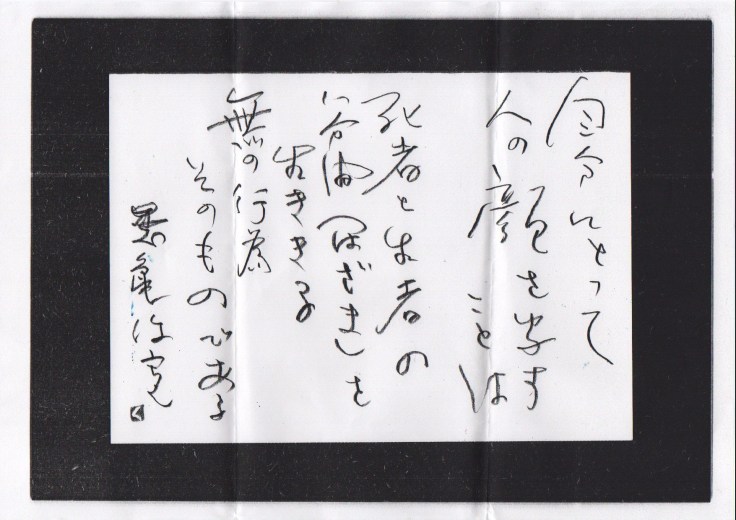 自分にとって
人の顔を写す
ことは
死者と生者の
谷間(はざま)を
生ききる
無の行為
そのものである